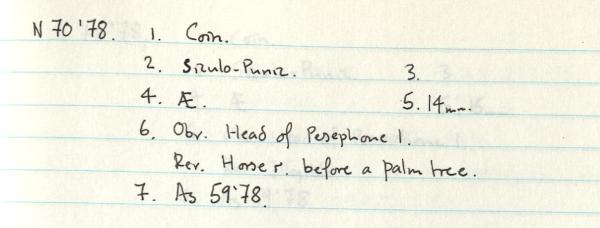 N 70'78. 1. Coin.
2. Siculo-Punic. 3.
4. Æ. 5. 14mm.
6. Obv. Head of Persephone l.
Rev. Horse r. before a palm tree.
7. As 59'78.